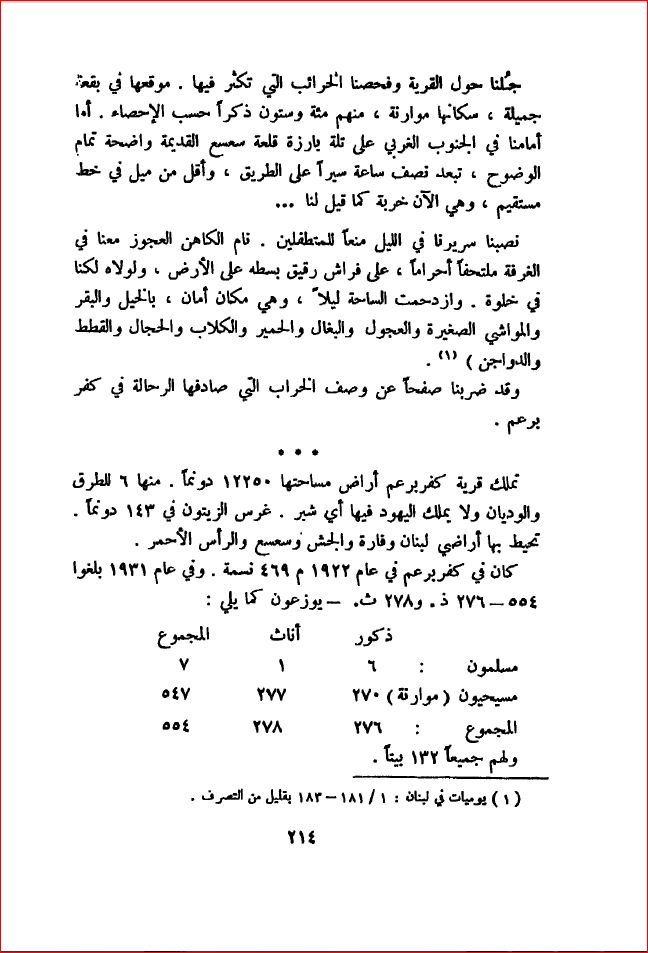 جُلنا حول القرية وفحصنا الخرائب التي تكثر فيها . موقعها في بقعة
جميلة ، سكانها موارنة ، منهم مئة وستون ذكراً حسب الإحصاء . أما
أمامنا في الجنوب الغربي على تلة بارزة قلعة سعسع القديمة واضحة تمام
الوضوح ، تبعد نصف ساعة سيراً على الطريق ، وأقل من ميل في خط
مستقيم ، وهي الآن خربة كما قيل لنا ...
نصبنا سريرنا في الليل منعاً للمتطفلين . نام الكاهن العجوز معنا في
الغرفة ملتحفاً أحراماً ، على فراش رقيق بسطه على الأرض ، ولولاه لكنا
في خلوة . وازدحمت الساحة ليلاً ، وهي مكان أمان ، بالخيل والبقر
والمواشي الصغيرة والعجول والبغال والحمير والكلاب والحجال والقطط
والدواجن ) (١) .
وقد ضربنا صفحاً عن وصف الخراب التي صادفها الرحالة في كفر
برعم .
* * *
تملك قرية كفربرعم أراض مساحتها ١٢٢٥٠ دونماً . منها ٦ للطرق
والوديان ولا يملك اليهود فيها أي شبر . غرس الزيتون في ١٤٣ دونماً .
تحيط بها أراضي لبنان وقارة والجش وسعسع والرأس الأحمر .
كان في كفربرعم في عام ١٩٢٢ م ٤٦٩ نسمة . وفي عام ١٩٣١ بلغوا
٥٥٤ – ٢٧٦ ذ. و٢٧٨ ث. – يوزعون كما يلي :
ذكور أناث المجموع
مسلمون : ٦ ١ ٧
مسيحيون ( موارنة ) ٢٧٠ ٢٧٧ ٥٤٧
المجموع : ٢٧٦ ٢٧٨ ٥٥٤
ولهم جميعاً ١٣٢ بيتاً .
( ١ ) يوميات في لبنان : ١ / ١٨١ – ١٨٣ بقليل من التصرف .
٢١٤